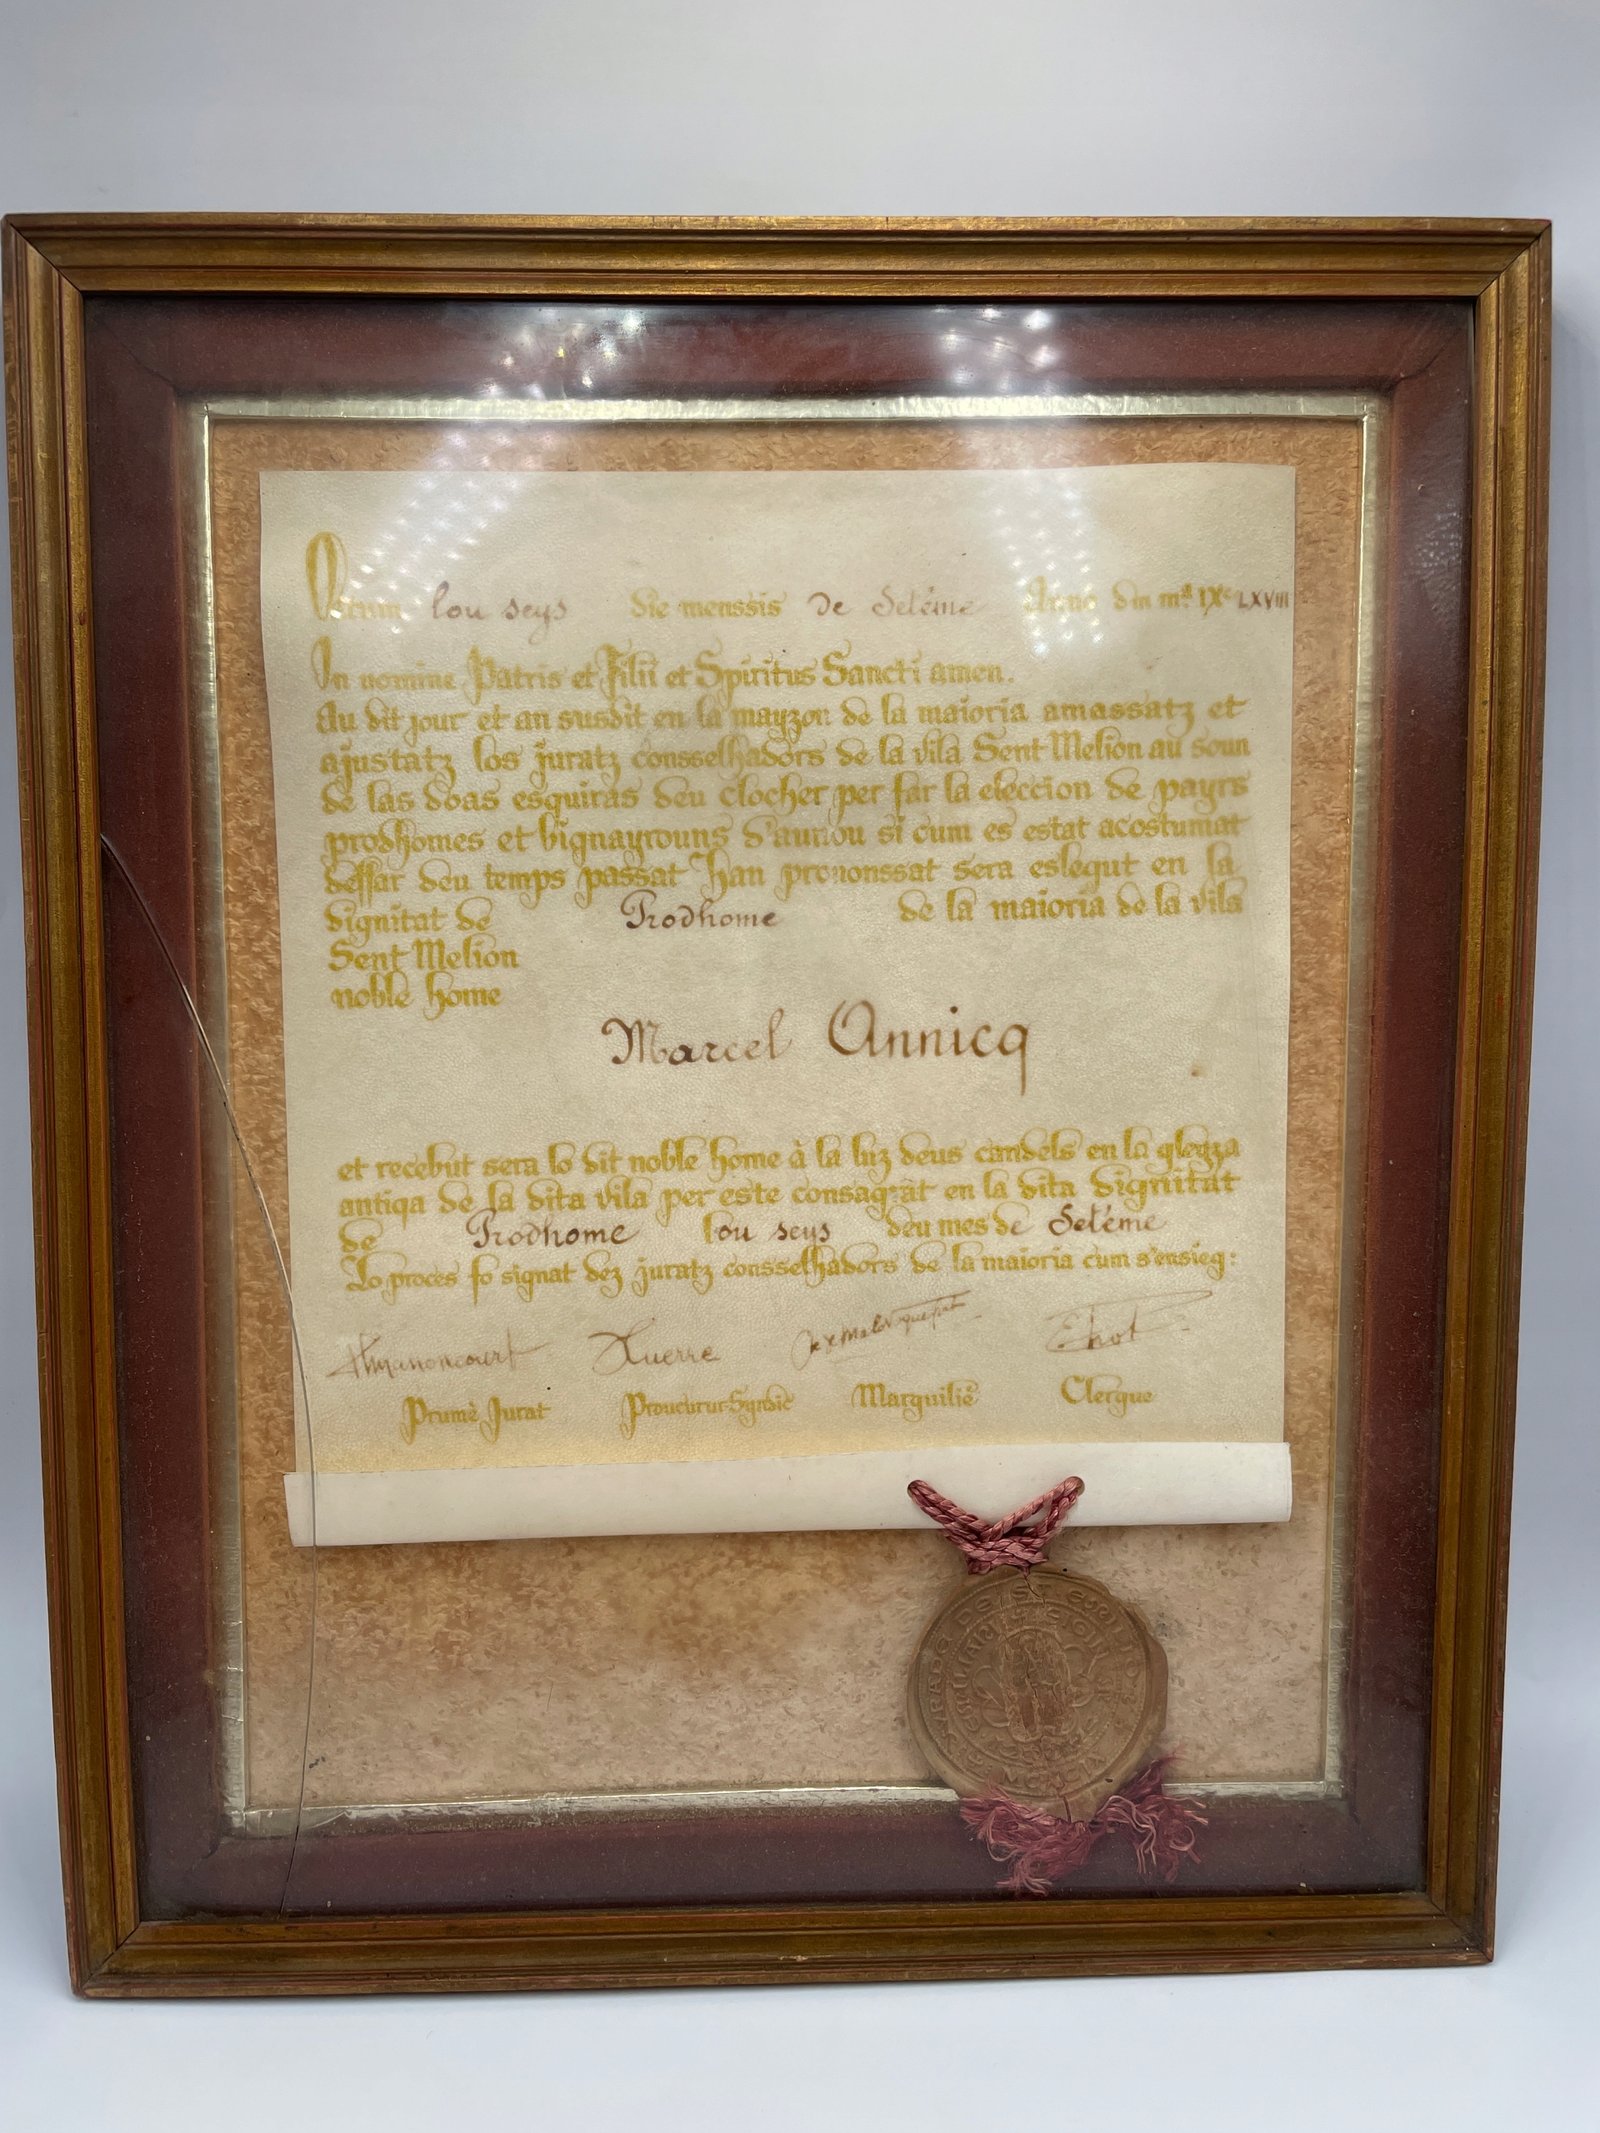 Datum lou seys die menssis de Setéme Anno dm mª IXᶜ LXVIII
In nomine Patris et Filii et Spiritus Sancti amen.
Au dit jour et an susdit en la mayzon de la maioria amassatz et
ajustatz los juratz consselhadors de la vila Sent Melion au soun
de las doas esquiras deu clocher per far la eleccion de payrs
prodhomes et bignayrouns d'aunou si cum es estat acostumat
deffar deu temps passat han prononssat sera eslegut en la
dignitat de Prodhome de la maioria de la vila
Sent Melion
noble home
Marcel Annicq
et recebut sera lo dit noble home à la luz deus candels en la gleyza
antiqa de la dita vila per este consagrat en la dita dignitat
de Prodhome lou seys deu mes de Setéme
Lo proces fo signat dez juratz consselhadors de la maioria cum s'ensieg:
Querre
Prumè Jurat Proucurur-Syndic Marguiliè Clergue